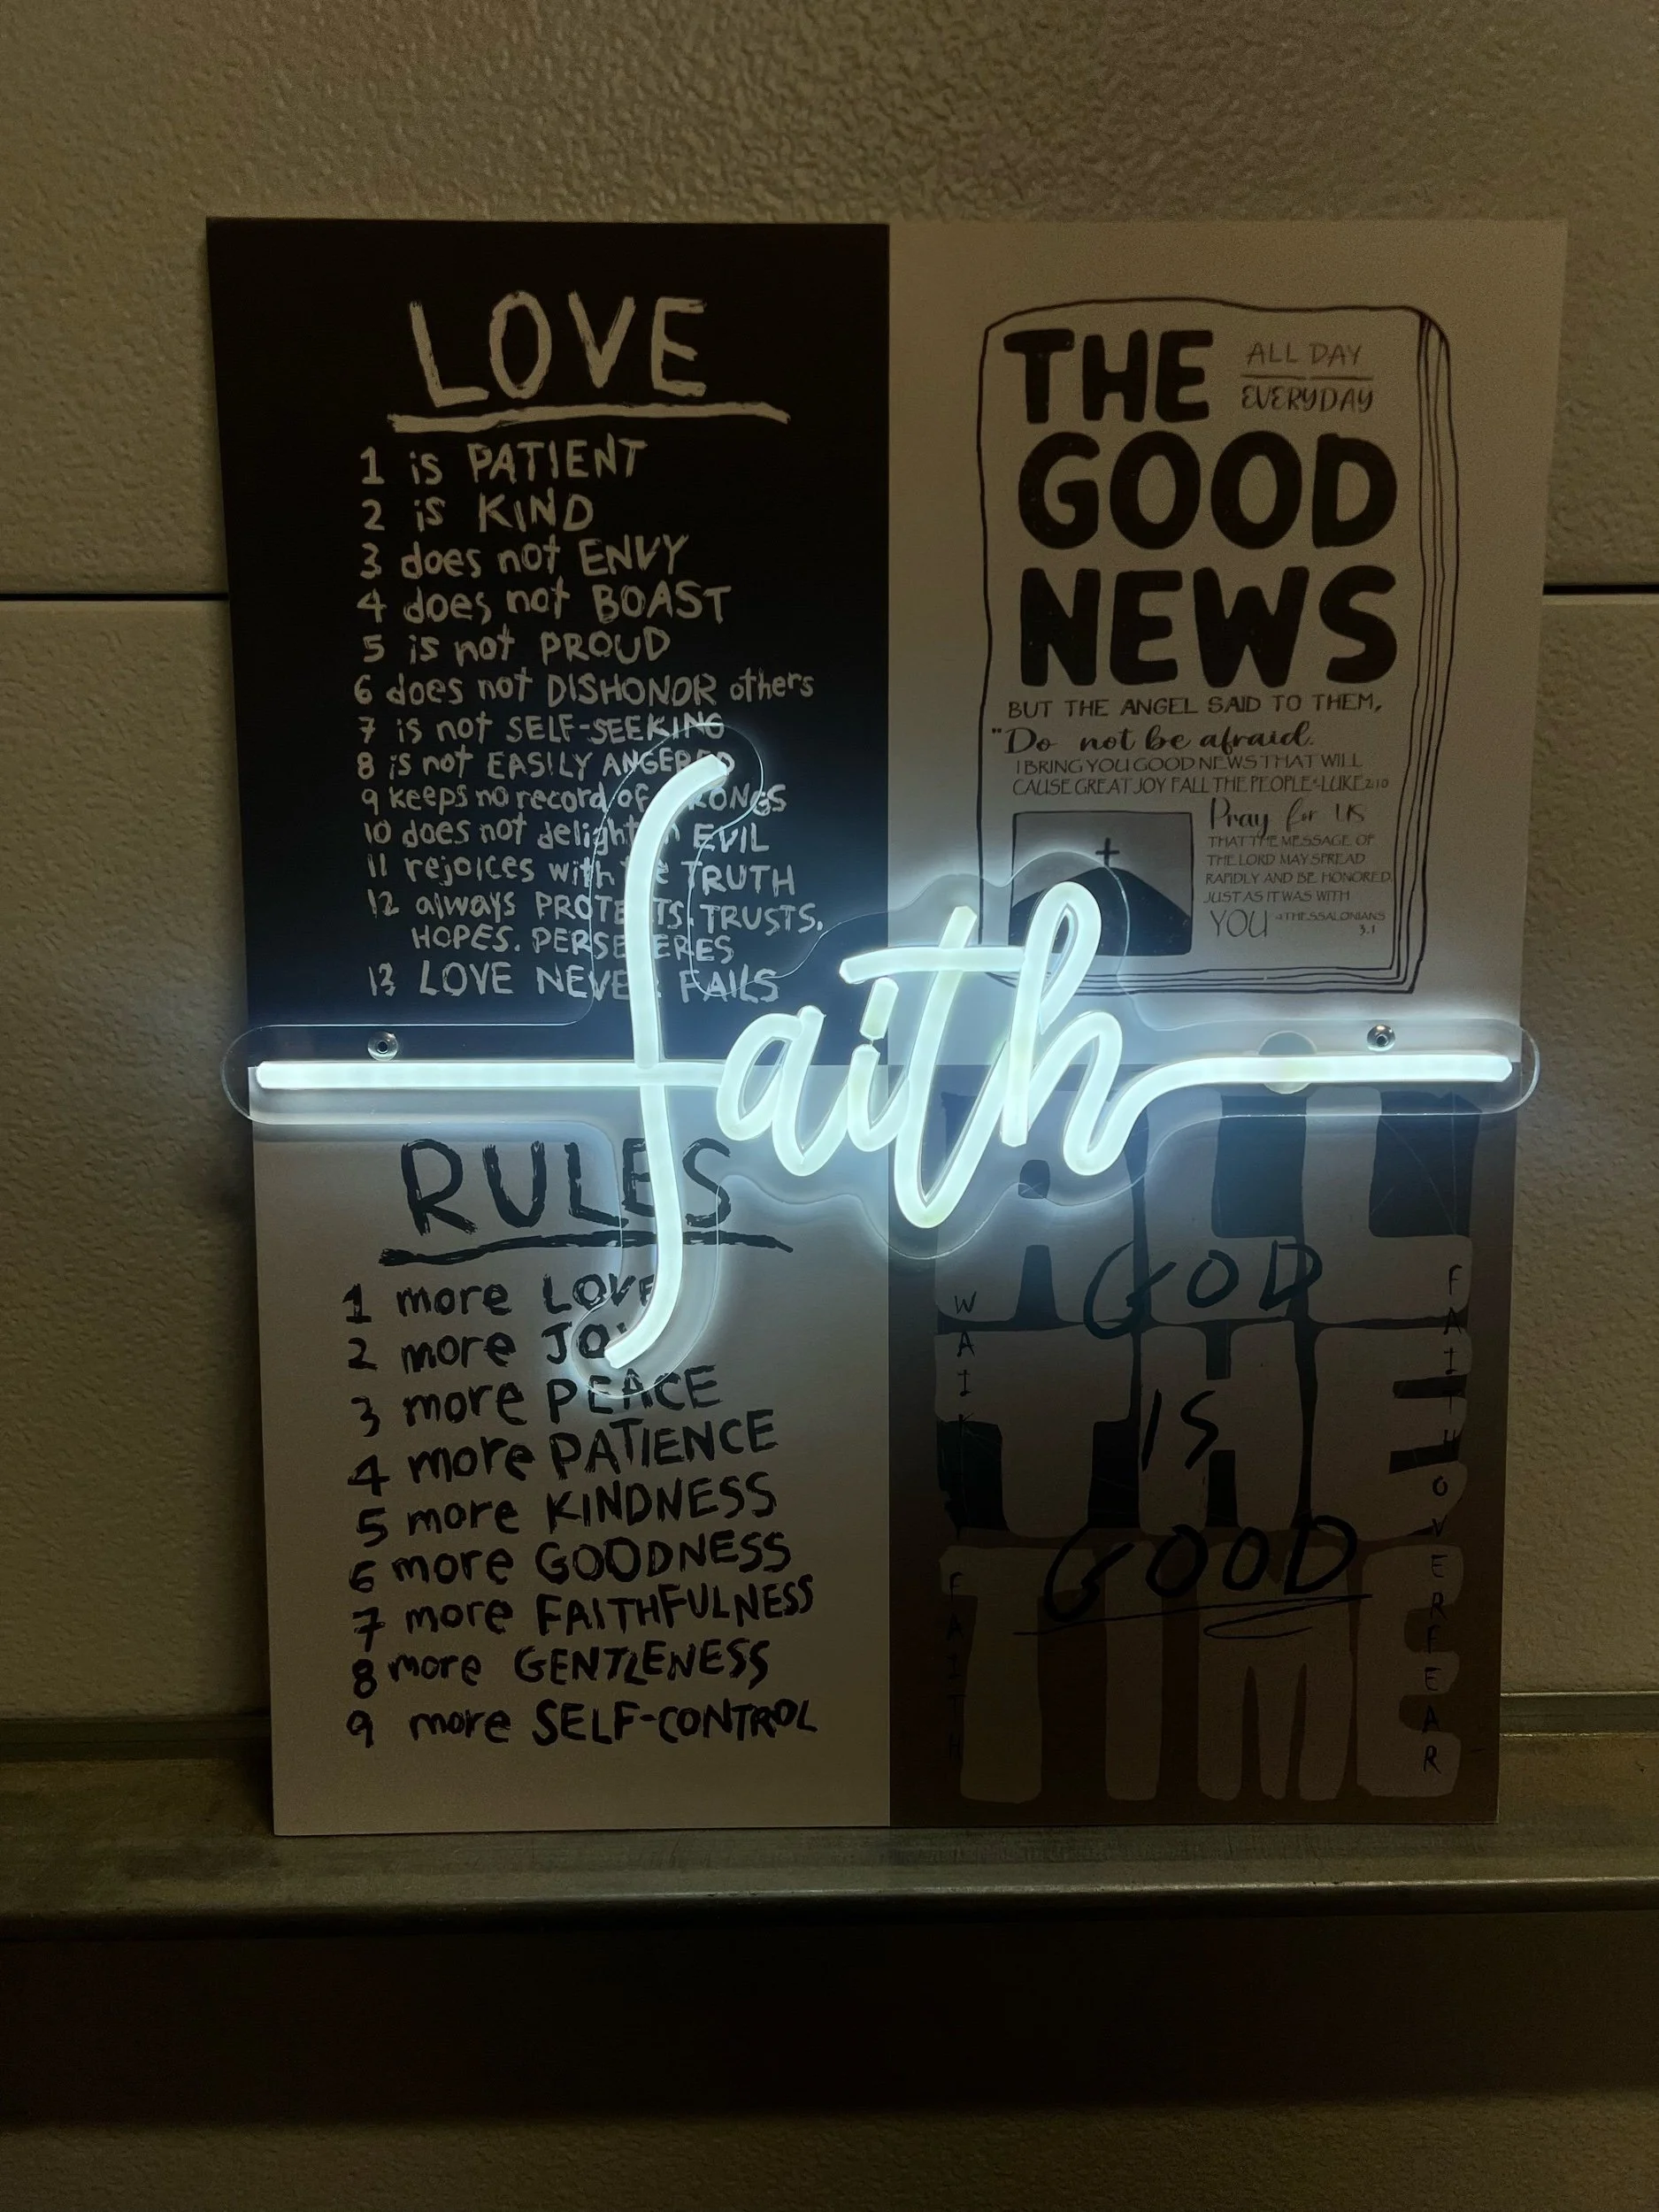 LOVE
1 is PATIENT
2 is KIND
3 does not ENVY
4 does not BOAST
5 is not PROUD
6 does not DISHONOR others
7 is not SELF-SEEKING
8 is not EASILY ANGERED
9 keeps no record of WRONGS
10 does not delight in EVIL
11 rejoices with the TRUTH
12 always PROTECTS, TRUSTS,
HOPES. PERSEVERES
13 LOVE NEVER FAILS
THE
ALL DAY
EVERYDAY
GOOD
NEWS
BUT THE ANGEL SAID TO THEM,
"Do not be afraid.
I BRING YOU GOOD NEWS THAT WILL
CAUSE GREAT JOY FALL THE PEOPLE"-LUKE 2:10
Pray for US
THAT THE MESSAGE OF
THE LORD MAY SPREAD
RAPIDLY AND BE HONORED,
JUST AS IT WAS WITH
YOU THESSALONIANS
3.1
faith
RULES
1 more LOVE
2 more JOY
3 more PEACE
4 more PATIENCE
5 more KINDNESS
6 more GOODNESS
7 more FAITHFULNESS
8 more GENTLENESS
9 more SELF-CONTROL
ALL
THE
TIME
GOD
IS
GOOD
FAITH
FAITH OVER FEAR